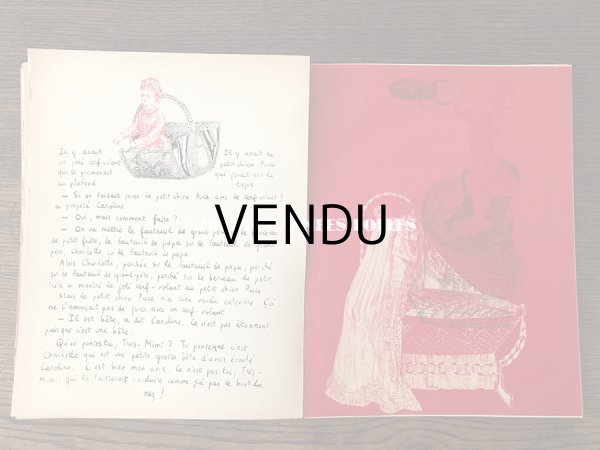 Il y avait
un joli cerf-volant
qui se promenait
au plafond.
Il y avait le
petit chien Puce
qui jouait sur le
tapis.
— Si on faisait jouer le petit chien Puce avec le cerf-volant ?
a proposé Caroline.
— Oui, mais comment faire ?
— On va mettre le fauteuil de grand-père sur le berceau
de petit frère, le fauteuil de papa sur le fauteuil de grand-
père, Charlotte sur le fauteuil de papa.
Alors Charlotte, perchée sur le fauteuil de papa, perché
sur le fauteuil de grand-père, perché sur le berceau de petit
frère a montré le joli cerf-volant au petit chien Puce.
Mais le petit chien Puce n'a rien voulu entendre. Ça
ne l'amusait pas de jouer avec un cerf-volant.
— Il est bête, a dit Caroline. Ce n'est pas étonnant
puisque c'est une bête.
Qu'en penses-tu, Très-Mimi ? Tu penses que c'est
Charlotte qui est une petite grosse bête d'avoir écouté
Caroline. C'est bien mon avis. Ce n'est pas toi, Très-
Mimi, qui te laisserait conduire comme ça par le bout du
nez !
VENDU